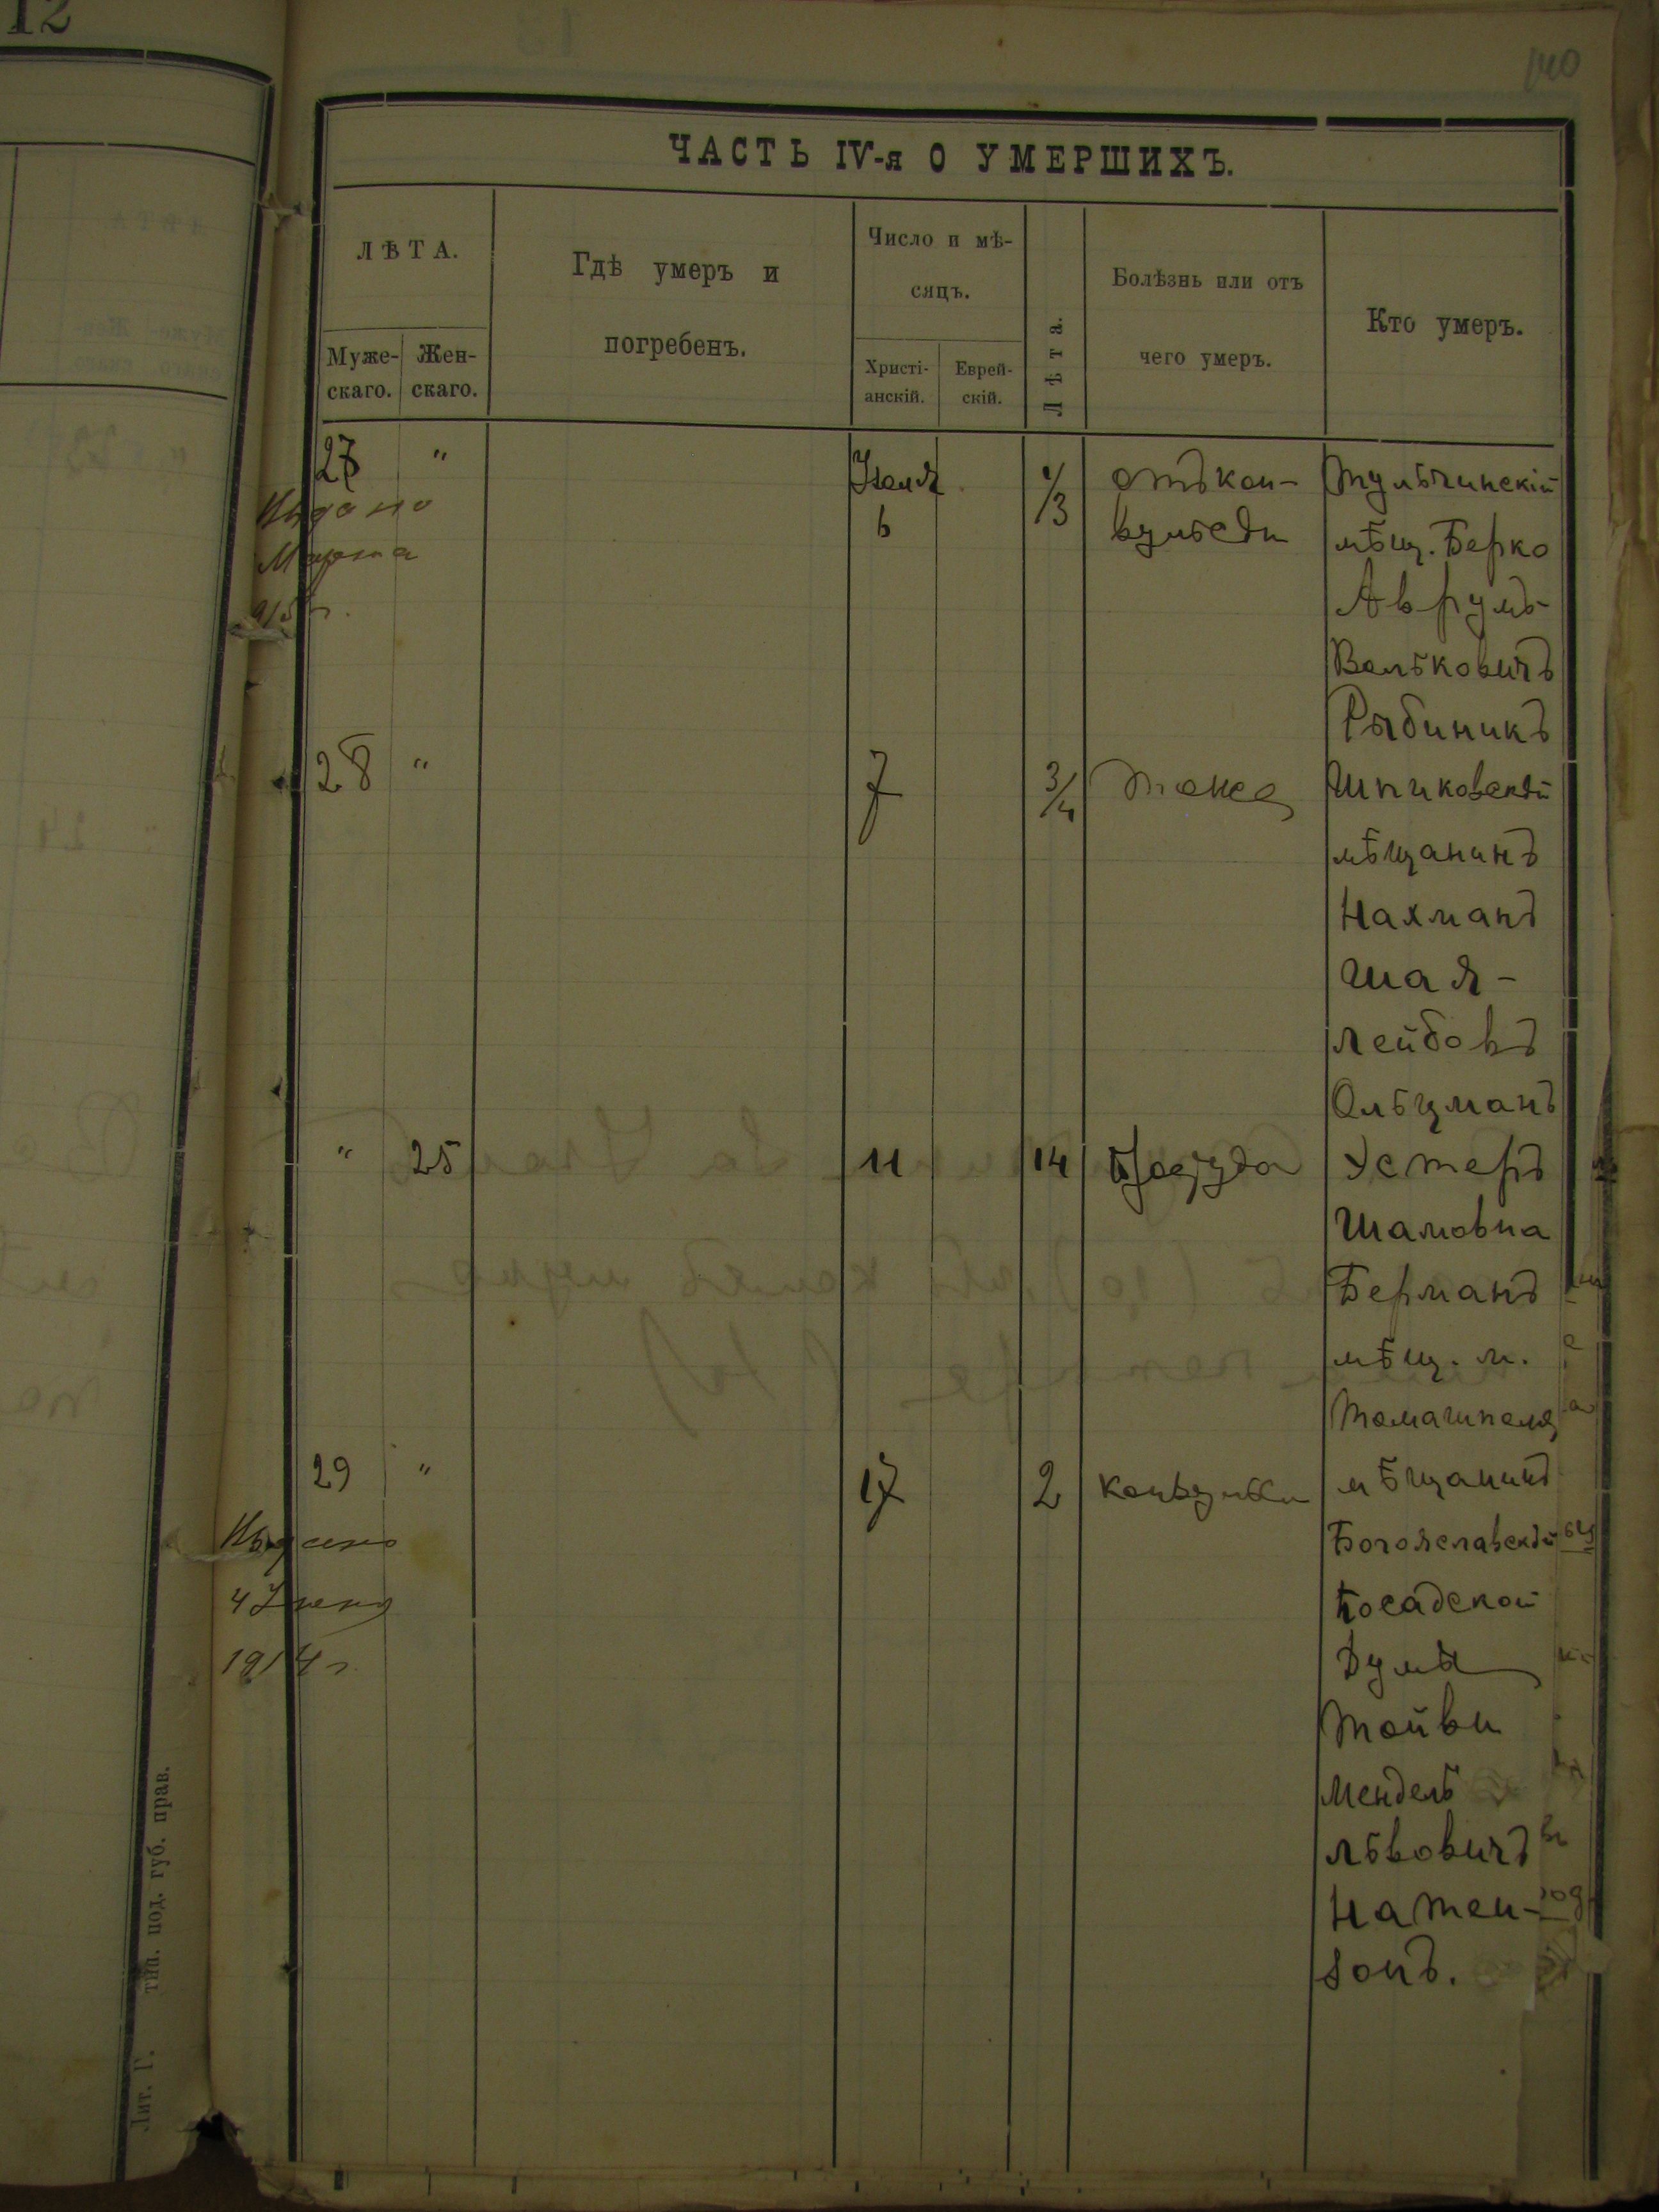 12
140
ЧАСТЬ IV-я О УМЕРШИХЪ.
ЛѢТА.
Муже-
скаго.
Жен-
скаго.
Гдѣ умеръ и
погребенъ.
Число и мѣ-
сяцъ.
Христі-
анскій.
Еврей-
скій.
Лѣта.
Болѣзнь или отъ
чего умеръ.
Кто умеръ.
27 " Іюля 1/3 отъ кон- Тульчинскій
6 вульсіи мѣщ. Берко
Аврумъ-
Вольковичъ
Рыбиникъ
Выдано
Марта
28 " 7 3/4 тоже Шпиковскій
мѣщанинъ
Нахманъ
Шая-
Лейбовъ
Ольцманъ
" 25 11 14 Простуда Эстеръ
Шамовна
Берманъ
мѣщ. м.
Томашполя
29 " 17 2 конвульсіи мѣщанинъ
Богославскій
Посадской
Думы
Тойви
Мендель
Львовичъ
Натен-
зонъ.
Выдано
4 Іюня
1914 г.
Лит. Г. тип. под. губ. прав.